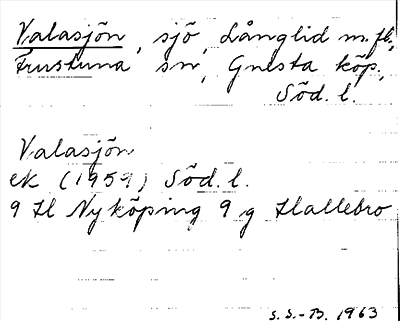 Valasjön, sjö, Långlid m.fl.,
Frustuna sn, Gnesta köp.,
Söd. l.
Valasjön
ek (1959) Söd. l.
9 H Nyköping 9 g Hallebro
S.S.-B. 1963